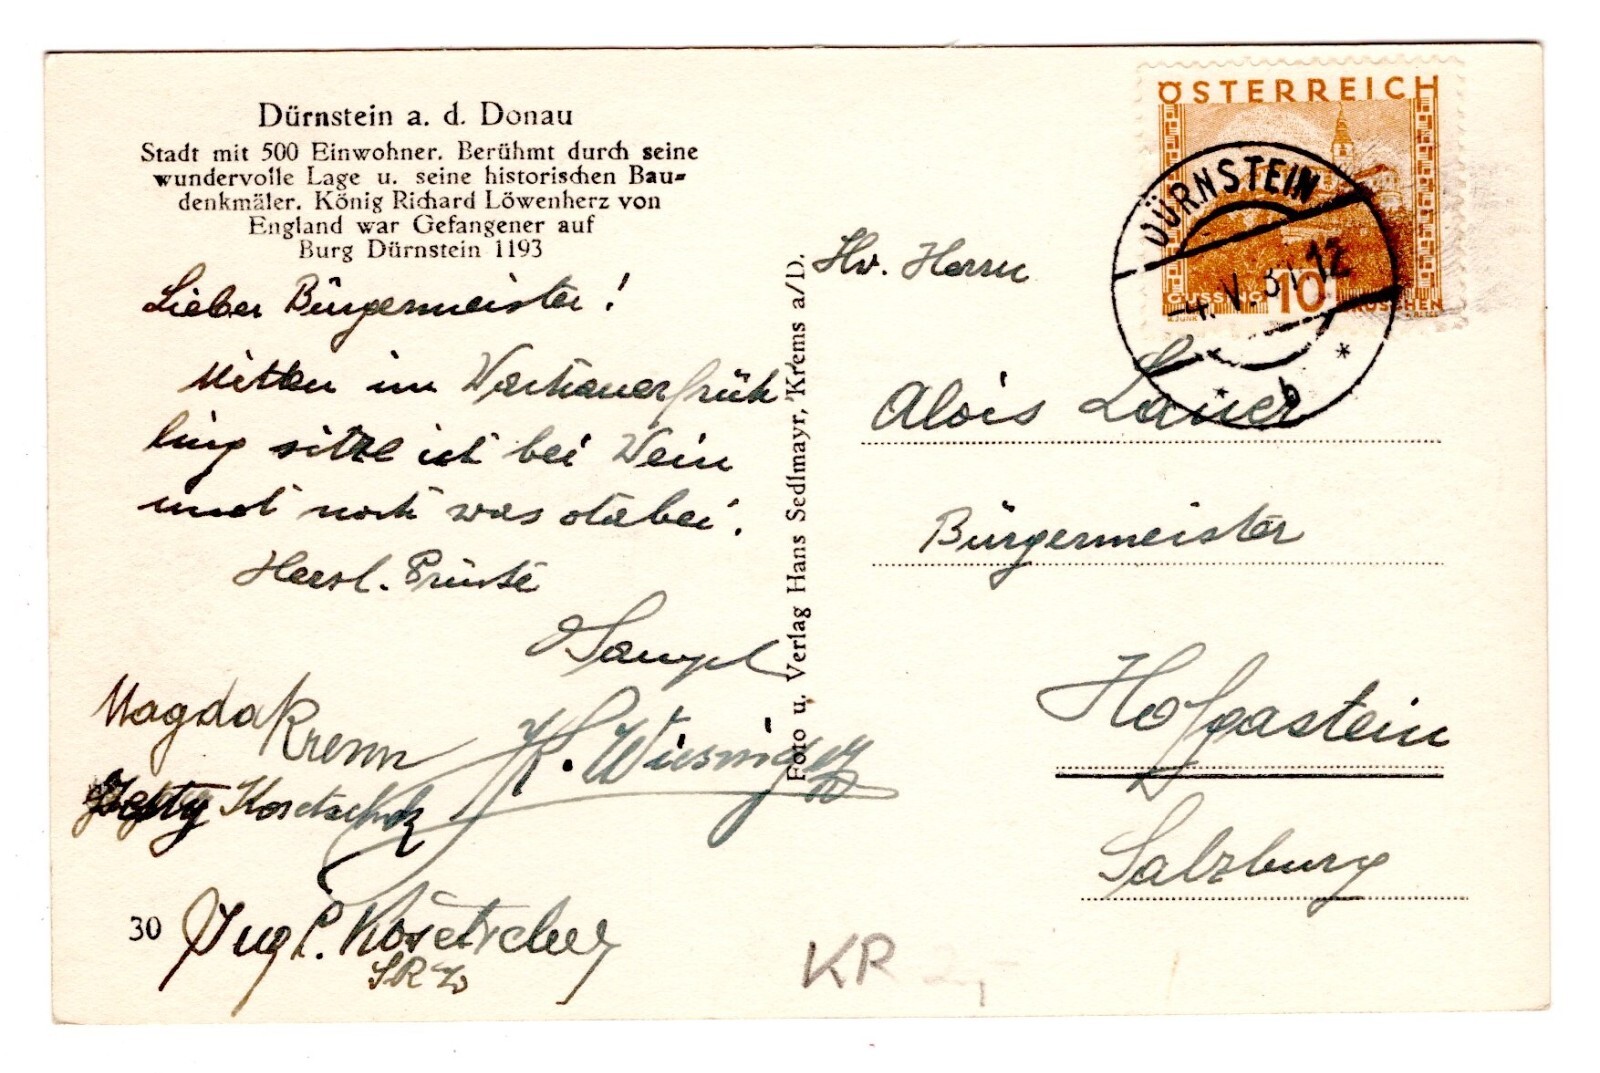 Dürnstein a. d. Donau
Stadt mit 500 Einwohner. Berühmt durch seine
wundervolle Lage u. seine historischen Bau-
denkmäler. König Richard Löwenherz von
England war Gefangener auf
Burg Dürnstein 1193
Lieber Bürgermeister!
Mitten im Wachauerfrüh
ling sitze ich bei Wein
und noch was dabei.
Herzl. Grüße
Magda Krenn
K. Wiesinger
Jetty
30
Foto u. Verlag Hans Sedlmayr, Krems a/D.
ÖSTERREICH
GÜSSING 10 GROSCHEN
DÜRNSTEIN
4. V. 31 12
* b *
Hv. Herrn
Alois Lauer
Bürgermeister
Hofgastein
Salzburg
KR